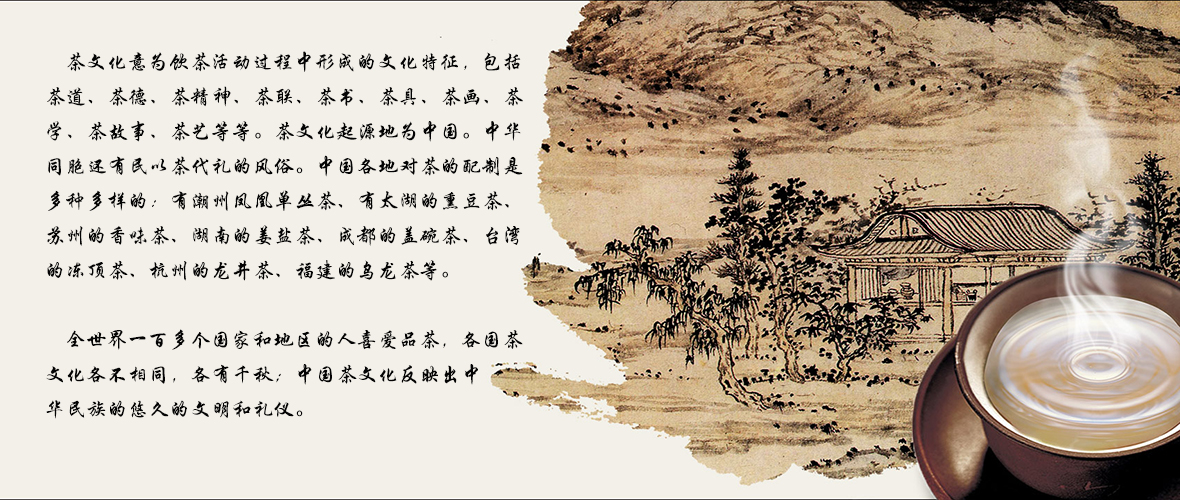 茶文化意为饮茶活动过程中形成的文化特征，包括
茶道、茶德、茶精神、茶联、茶书、茶具、茶画、茶
学、茶故事、茶艺等等。茶文化起源地为中国。中华
同胞还有民以茶代礼的风俗。中国各地对茶的配制是
多种多样的：有潮州凤凰单丛茶、有太湖的熏豆茶、
苏州的香味茶、湖南的姜盐茶、成都的盖碗茶、台湾
的冻顶茶、杭州的龙井茶、福建的乌龙茶等。
全世界一百多个国家和地区的人喜爱品茶，各国茶
文化各不相同，各有千秋；中国茶文化反映出中
华民族的悠久的文明和礼仪。